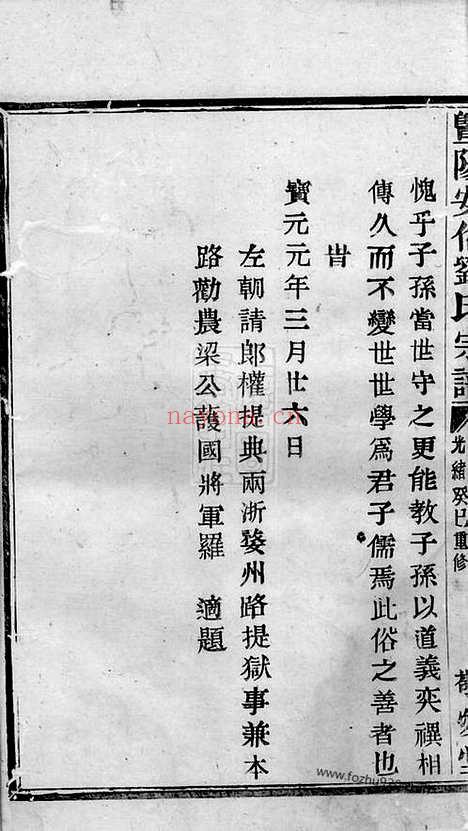 暨陽安俗劉氏宗譜
光緒癸巳重修
愧乎子孫當世守之更能教子孫以道義奕禩相
傳久而不變世世學爲君子儒焉此俗之善者也
旹
寶元元年三月廿六日
左朝請郎權提典兩浙婺州路提獄事兼本
路勸農梁公護國將軍羅　適題
nayona.cn
www.fozhu920.com